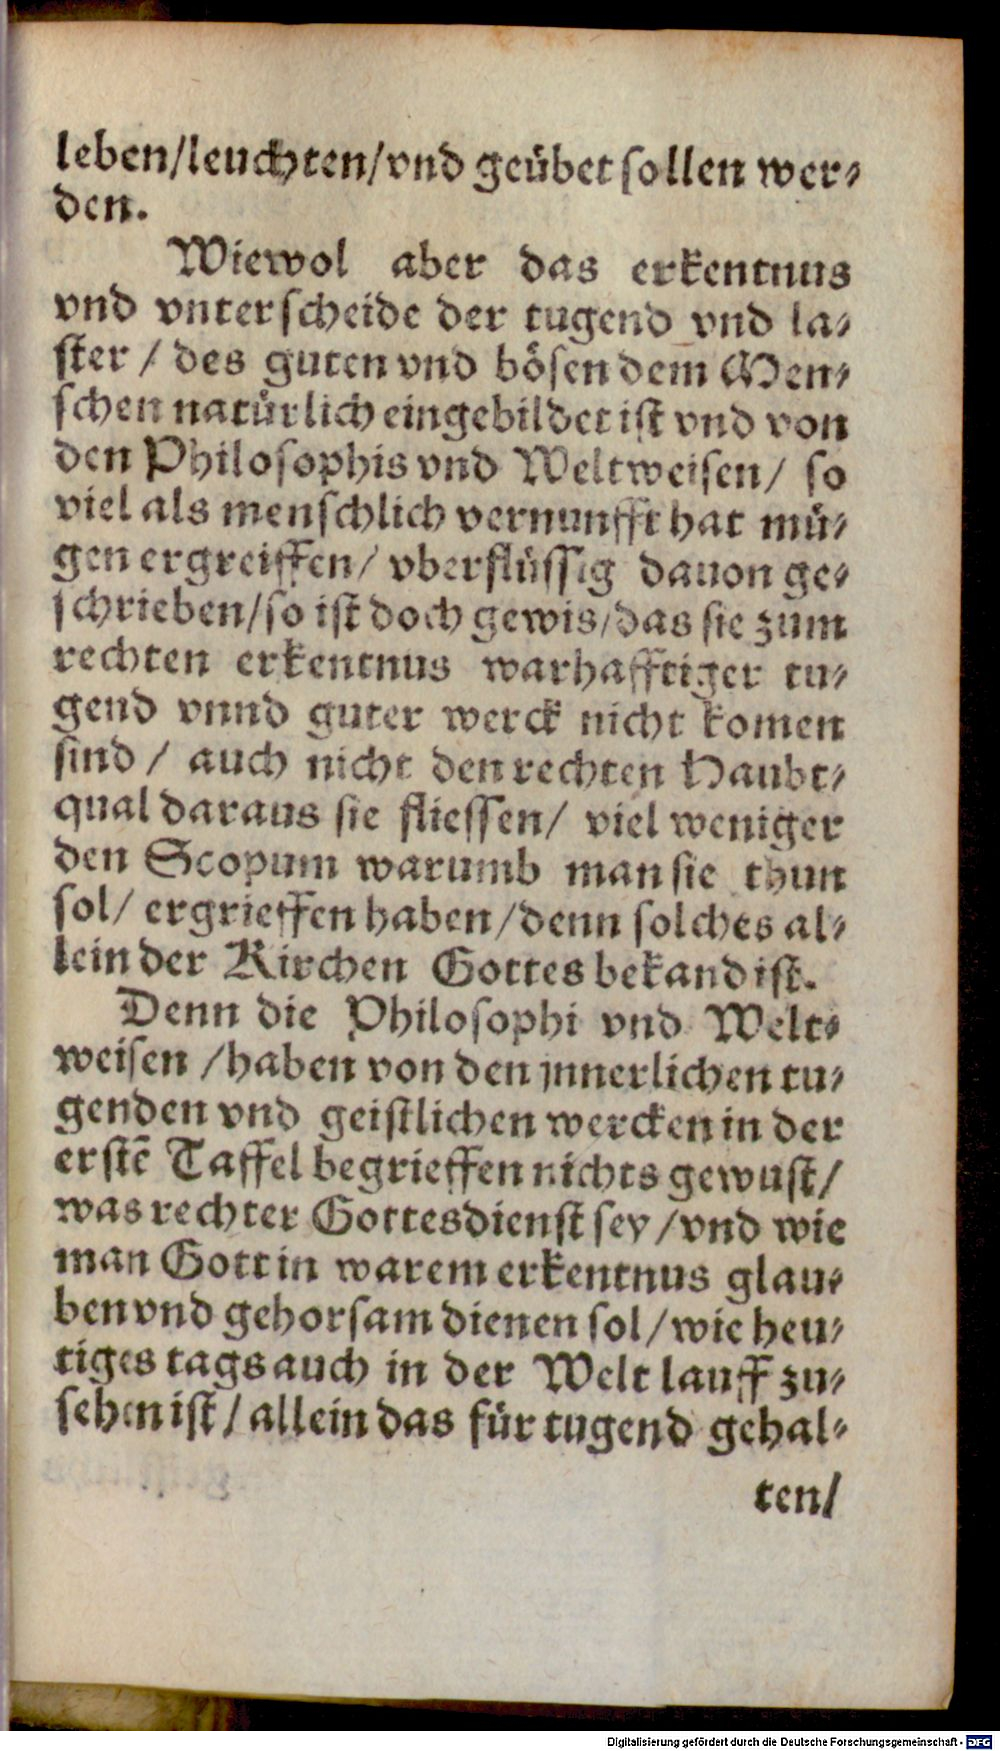 leben/leuchten/vnd geübet sollen wer-
den.
Wiewol aber das erkentnus
vnd vnterscheide der tugend vnd la-
ster / des guten vnd bösen dem Men-
schen natürlich eingebildet ist vnd von
den Philosophis vnd Weltweisen/ so
viel als menschlich vernunfft hat mü-
gen ergreiffen/ vberflüssig dauon ge-
schrieben/so ist doch gewis/das sie zum
rechten erkentnus warhafftiger tu-
gend vnnd guter werck nicht komen
sind / auch nicht den rechten Haubt-
qual daraus sie fliessen/ viel weniger
den Scopum warumb man sie thun
sol/ ergrieffen haben/denn solches al-
lein der Kirchen Gottes bekand ist.
Denn die Philosophi vnd Welt-
weisen /haben von den jnnerlichen tu-
genden vnd geistlichen wercken in der
erstē Taffel begrieffen nichts gewust/
was rechter Gottesdienst sey /vnd wie
man Gott in warem erkentnus glau-
ben vnd gehorsam dienen sol/wie heu-
tiges tags auch in der Welt lauff zu-
sehen ist/allein das für tugend gehal-
ten/
Digitalisierung gefördert durch die Deutsche Forschungsgemeinschaft - DFG